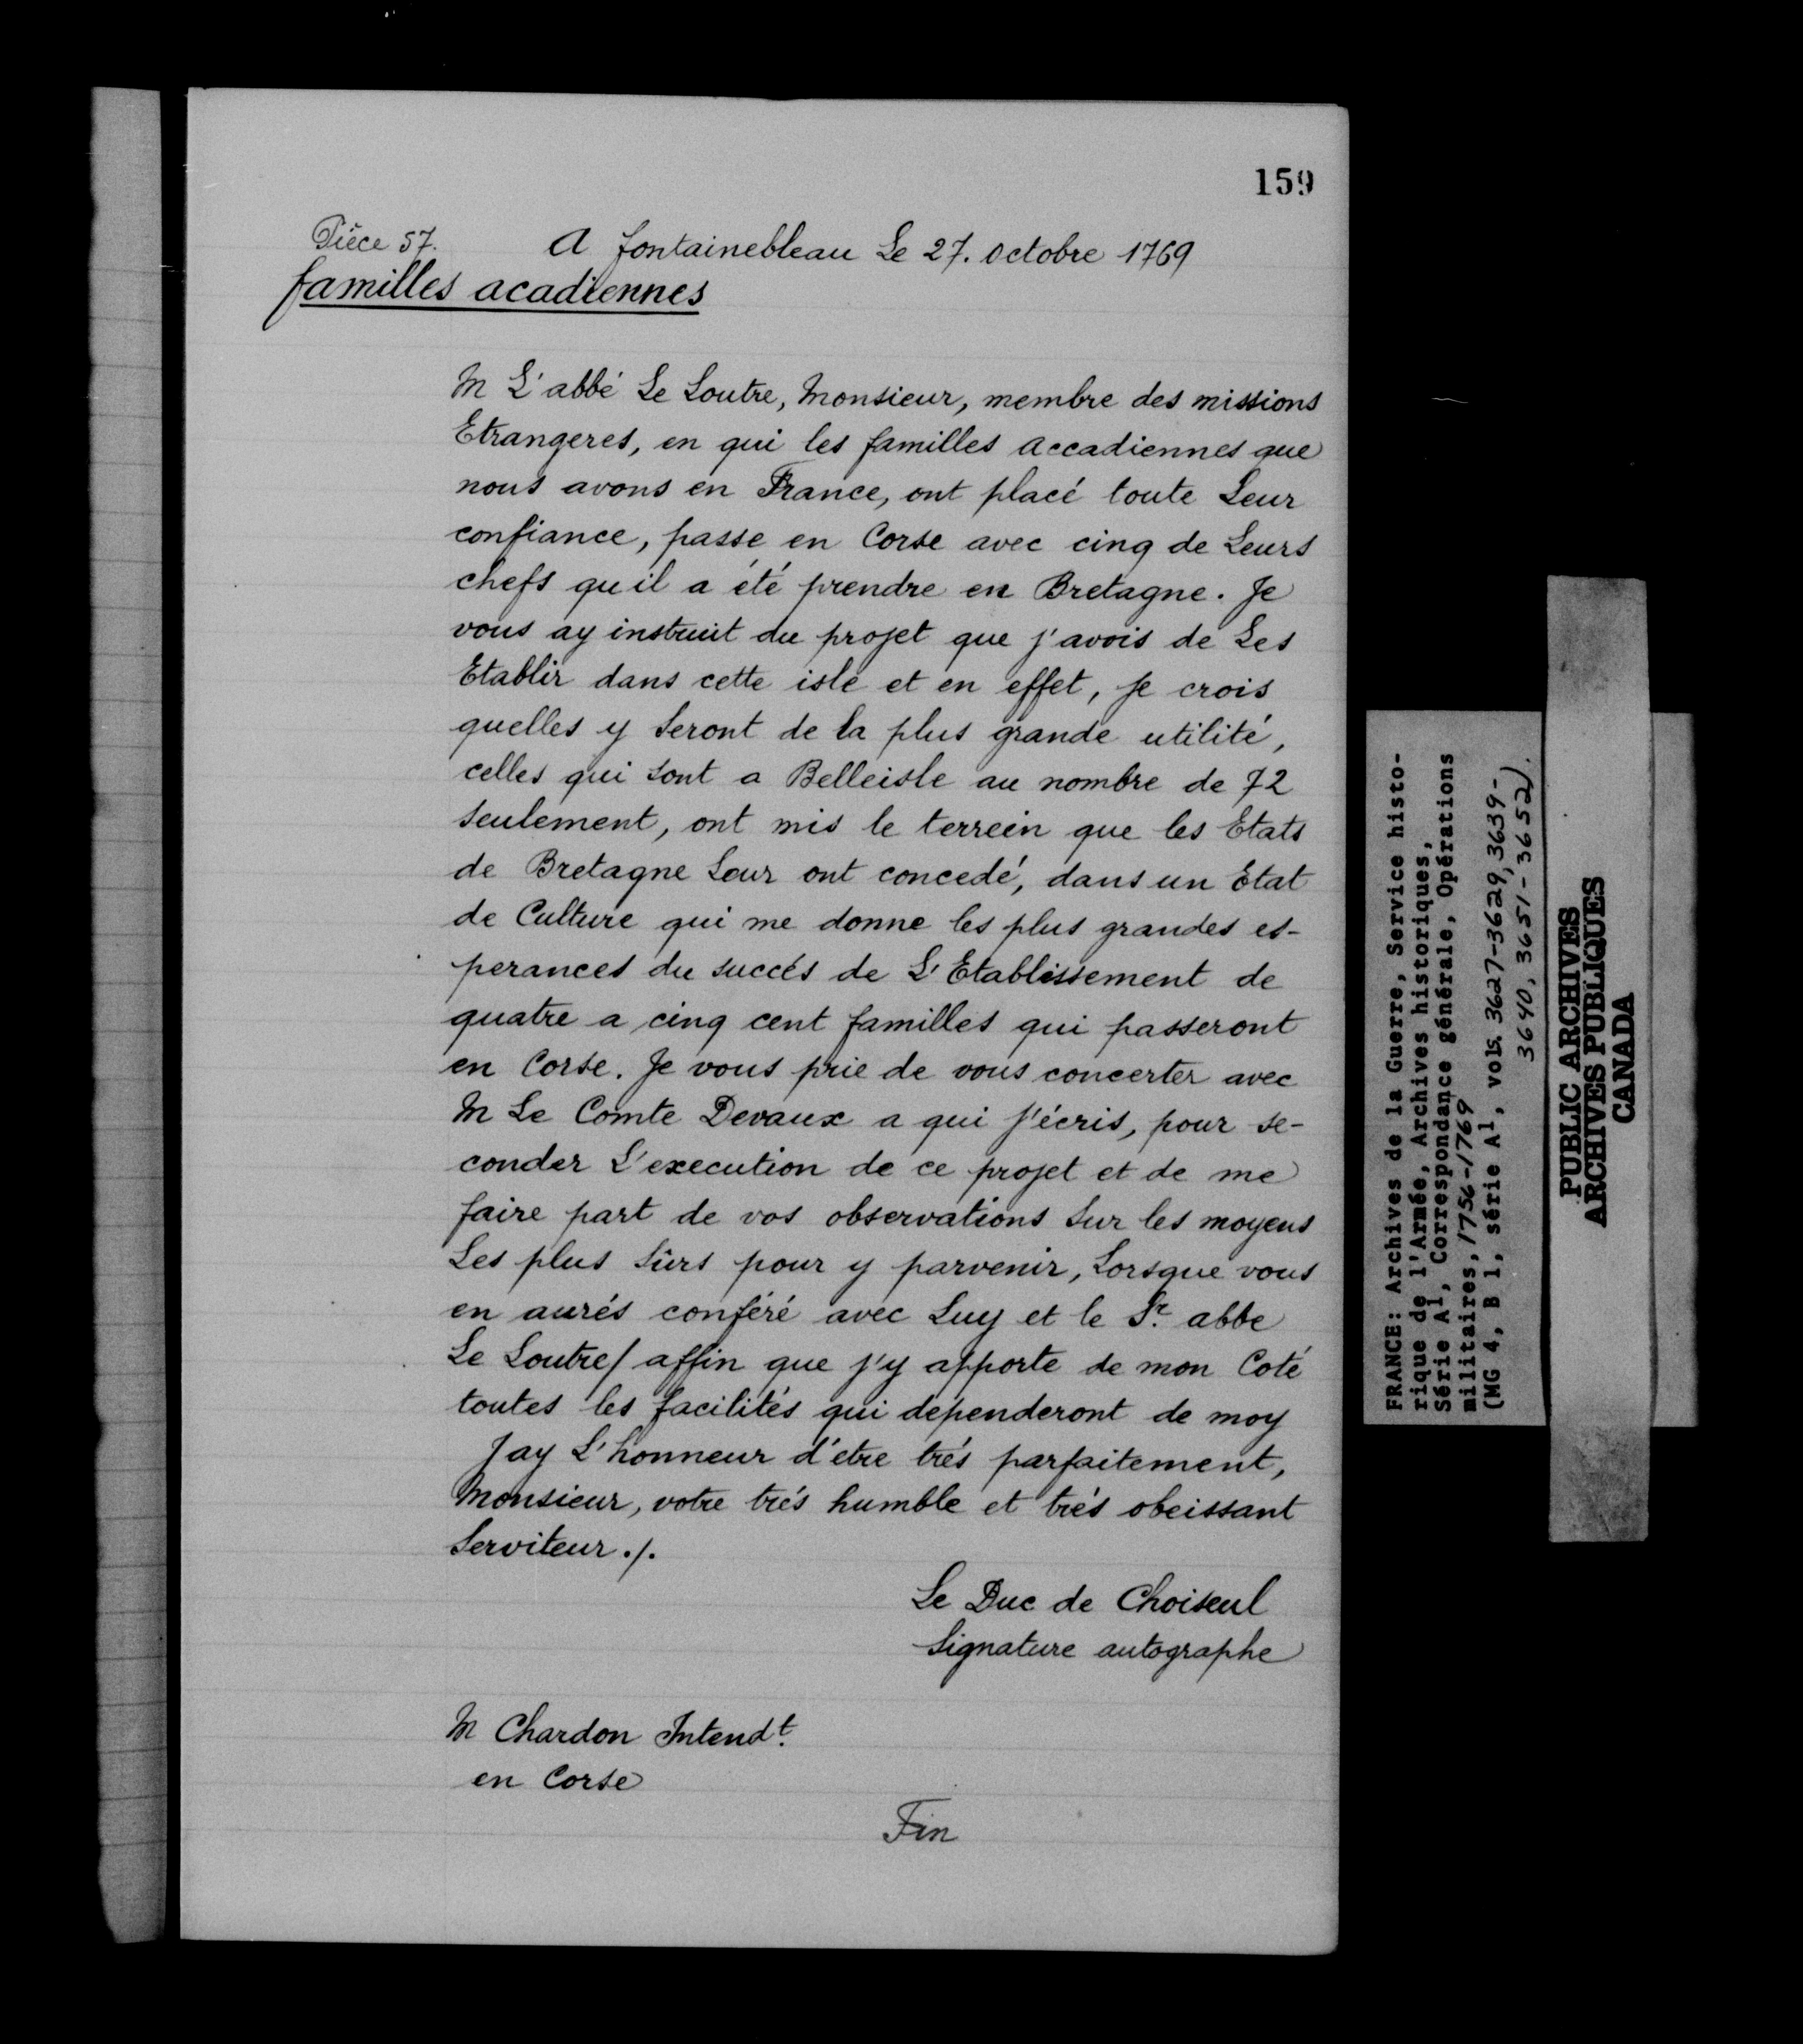 159
Pièce 57.
A fontainebleau Le 27. octobre 1769
familles acadiennes
M L'abbé Le Loutre, Monsieur, membre des missions
Etrangeres, en qui les familles accadiennes que
nous avons en France, ont placé toute Leur
confiance, passe en Corse avec cinq de Leurs
chefs qu'il a été prendre en Bretagne. Je
vous ay instruit du projet que j'avois de Les
Etablir dans cette isle et en effet, je crois
quelles y seront de la plus grande utilité,
celles qui sont a Belleisle au nombre de 72
seulement, ont mis le terrein que les Etats
de Bretagne Leur ont concedé, dans un Etat
de Culture qui me donne les plus grandes es-
perances du succés de L'Etablissement de
quatre a cinq cent familles qui passeront
en Corse. Je vous prie de vous concerter avec
M Le Comte Devaux a qui j'écris, pour se-
conder L'execution de ce projet et de me
faire part de vos observations sur les moyens
Les plus sûrs pour y parvenir, Lorsque vous
en aurés conféré avec Luy et le Sr. abbe
Le Loutre/ affin que j'y apporte de mon Coté
toutes les facilités qui dependeront de moy
Jay L'honneur d'etre trés parfaitement,
Monsieur, votre trés humble et trés obeissant
Serviteur ./.
Le Duc de Choiseul
Signature autographe
M Chardon Intendt.
en Corse
Fin
FRANCE: Archives de la Guerre, Service histo-
rique de l'Armée, Archives historiques,
Série A1, Correspondance générale, Opérations
militaires, 1756-1769
(MG 4, B 1, série A1, vols. 3627-3629, 3639-
3640, 3651-3652).
PUBLIC ARCHIVES
ARCHIVES PUBLIQUES
CANADA